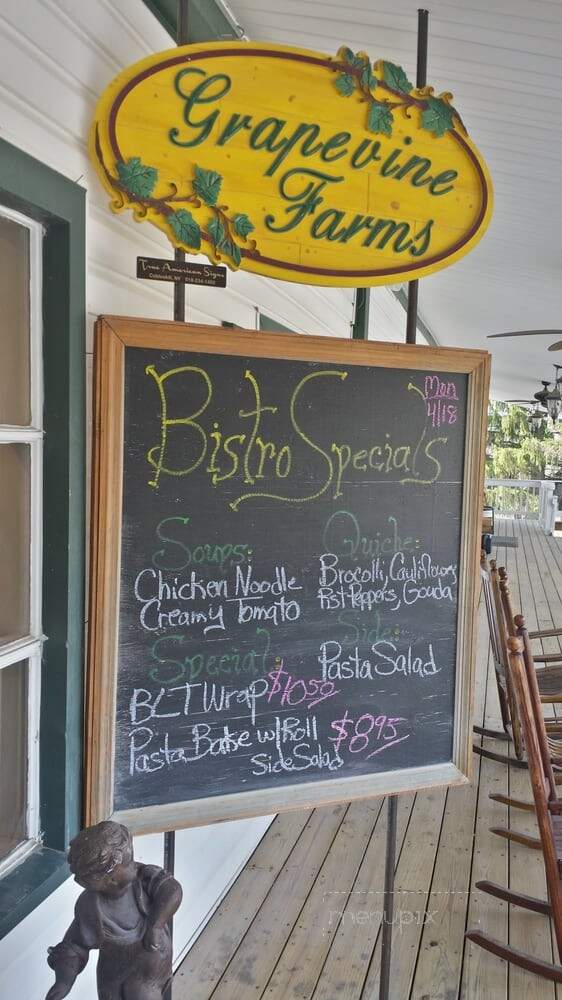 Grapevine
Farms
True American Signs
Cobleskill, NY 518-234-1402
Mon
4/18
Bistro Specials
Soups:
Chicken Noodle
Creamy Tomato
Quiche:
Brocolli, Cauliflower,
Rst Peppers, Gouda
Side:
Pasta Salad
Special:
BLT Wrap $10.50
Pasta Bake w/Roll $8.95
Side Salad
menupix